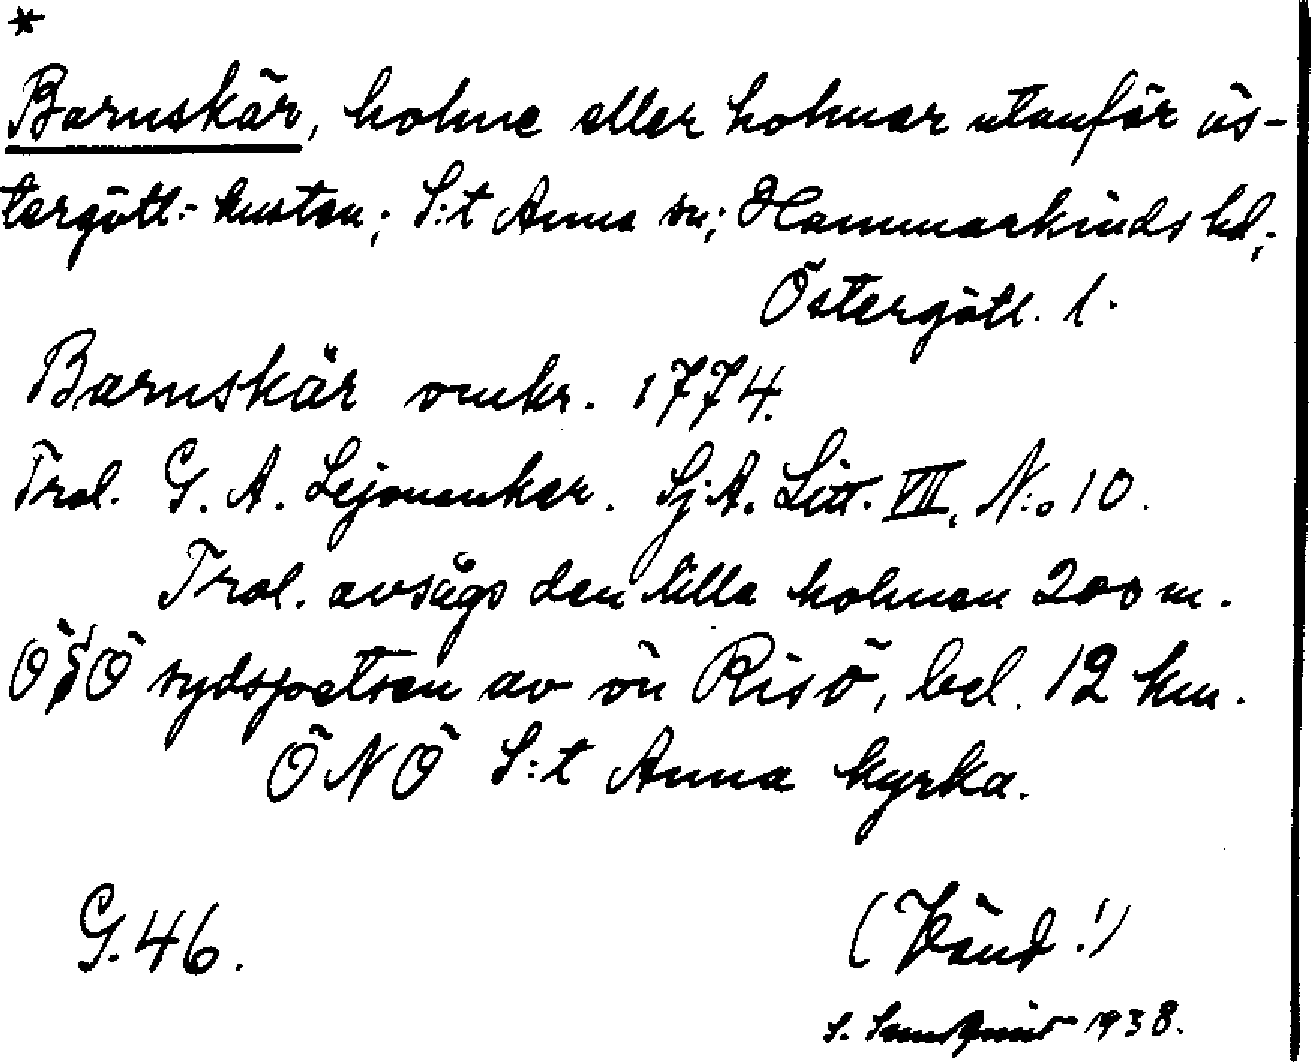 *
Barnskär, holme eller holmar utanför ös-
tergötl.- kusten; S:t Anna sn; Hammarkinds hd;
Östergötl. l.
Barnskär omkr. 1774.
Trol. G. A. Lejonankar. Sj.A. Litt. VII, N:o 10.
Trol. avsågs den lilla holmen 200 m.
ÖSÖ sydspetsen av ön Risö, bel. 12 km.
ÖNÖ S:t Anna kyrka.
G. 46.
(Vänd!)
S. 1938.